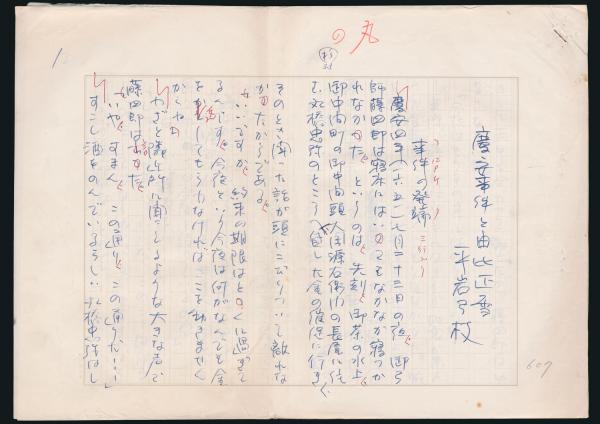 丸
の
1
慶安事件と由比正雪
平岩弓枝
事件の発端
慶安四年(一六五一)七月二十三日の夜、御弓
師藤四郎は寝床にはいってもなかなか寝つか
れなかった。というのは、先刻、御茶の水上
御中間町の御中間頭、人見源右衛門の長屋に住
む丸橋忠弥のところへ貸した金の催促に行き、
そのとき聞いた話が頭にこびりついて離れな
かったからである。
「いいですか、約束の期限はとっくに過ぎて
るんです。今夜という今夜は何がなんでも金
をかえしてもらわなければ、ここを動きません
からね」
わざと隣近所に聞こえるような大きな声で
藤四郎は
「いや、すまん。この通り、この通りだ……」
すこし酒をのんでいるらしい丸橋忠弥はし
607